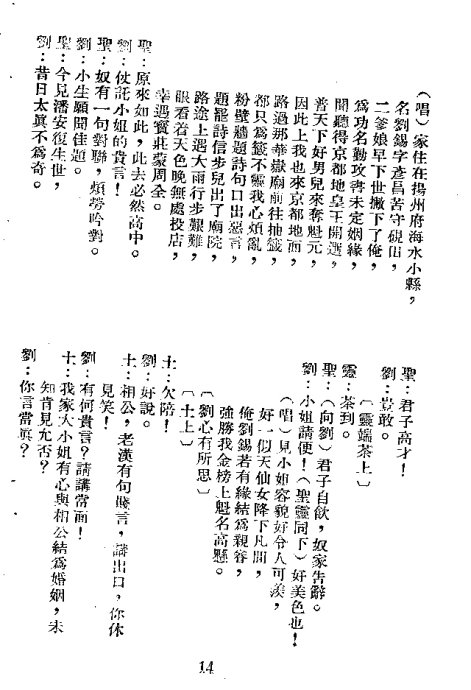 (唱)家住在揚州府海水小縣，
名劉錫字彥昌苦守硯田，
二爹娘早下世撇下了俺，
爲功名勤攻書未定姻緣，
聞聽得京都地皇王開選，
普天下好男兒來奪魁元，
因此上我也來京都地面，
路過那華嶽廟前往抽籤，
都只爲籤不靈我心煩亂，
粉壁牆題詩句口出惡言，
題罷詩信步兒出了廟院，
路途上遇大雨行步艱難，
眼看着天色晚無處投店，
幸遇寶莊蒙周全。
聖：原來如此，此去必然高中。
劉：仗託小姐的貴言！
聖：奴有一句對聯，煩勞吟對。
劉：小生願聞佳題。
聖：今見潘安復生世，
劉：昔日太眞不爲奇。
聖：君子高才！
劉：豈敢。
〔靈端茶上〕
靈：茶到。
聖：(向劉)君子自飲，奴家告辭。
劉：小姐請便！(聖靈同下)好美色也！
(唱)見小姐容貌好令人可羨，
好一似天仙女降下凡間，
俺劉錫若有緣結爲親眷，
強勝我金榜上魁名高懸。
〔劉心有所思〕
〔土上〕
土：欠陪！
劉：好說。
土：相公，老漢有句賤言，講出口，你休
見笑！
劉：有何貴言？請講當面！
土：我家大小姐有心與相公結爲婚姻，未
知肯見允否？
劉：你言當眞？
14